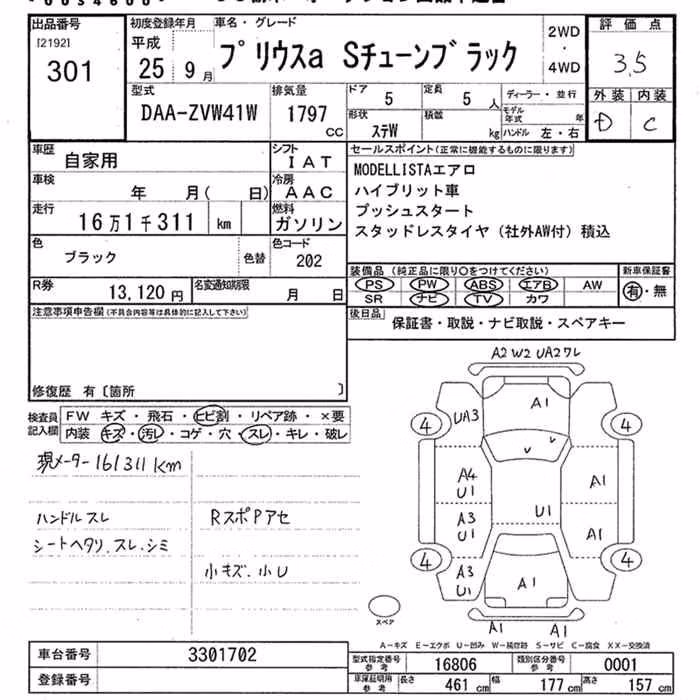 出品番号 初度登録年月 車名・グレード 2WD・4WD 評価点
[2192] 301 平成25年9月 プリウスa Sチューンブラック 3.5
型式 排気量 ドア 定員 ディーラー・並行 外装 内装
DAA-ZVW41W 1797 CC 5 5 人 モデル年式 年 D C
形状 積載
ステW kg ハンドル 左・右
車歴 自家用 シフト IAT セールスポイント(正常に機能するものに限ります)
車検 年 月( 日) 冷房 AAC MODELLISTAエアロ
ハイブリット車
走行 16万1千311 km 燃料 ガソリン プッシュスタート
スタッドレスタイヤ(社外AW付)積込
色 ブラック 色替 色コード 202
装備品(純正品に限り○をつけてください) 新車保証書
PS PW ABS エアB AW 有・無
SR ナビ TV カワ
R券 13,120円 名変通知期限 月 日
後日品 保証書・取説・ナビ取説・スペアキー
注意事項申告欄(不具合内容等は具体的に記入して下さい)
修復歴 有〔箇所 〕
検査員記入欄 FW キズ・飛石・ヒビ割・リペア跡・×要
内装 キズ・汚レ・コゲ・穴・スレ・キレ・破レ
現メーター161311km
ハンドルスレ RスポPアセ
シートヘタリ.スレ.シミ
小キズ.小U
A2 W2 UA2ワレ
A1
UA3
4 4
A4 U1
A1
A3 U1
U1
A1
4 4
A3 U1
A1
A1 A1
スペア
A-キズ E-エクボ U-凹み W-補修跡 S-サビ C-腐食 XX-交換済
車台番号 3301702 型式指定番号 参考 16806 類別区分番号 参考 0001
登録番号 車庫証明用 参考 長さ 461cm 幅 177cm 高さ 157cm